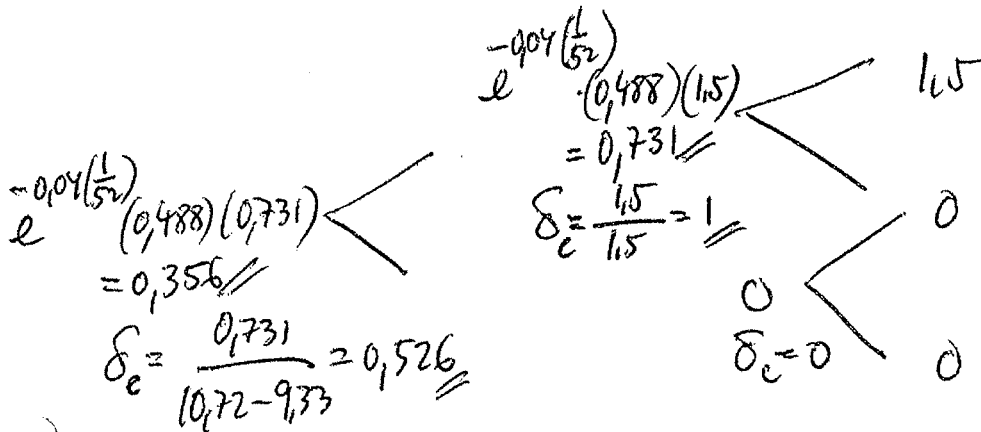 e^{-0,04(1/52)} (0,488)(0,731)
= 0,356
δ_c = 0,731 / (10,72-9,33) = 0,526
e^{-0,04(1/52)} · (0,488)(1,5)
= 0,731
δ_c = 1,5 / 1,5 = 1
0
δ_c = 0
1,5
0
0